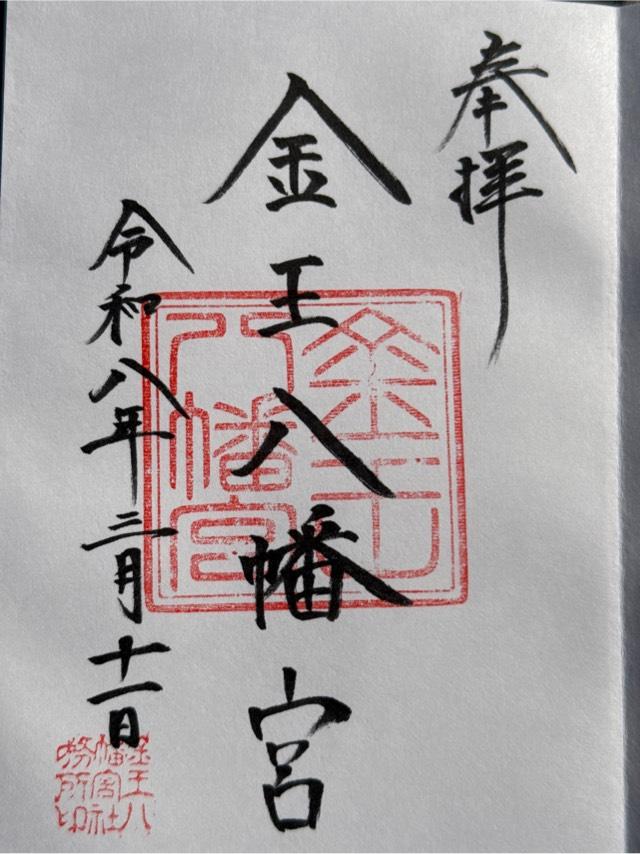 奉拝
金王八幡宮
令和八年三月十一日
金王八幡宮
金王八幡宮社務所印